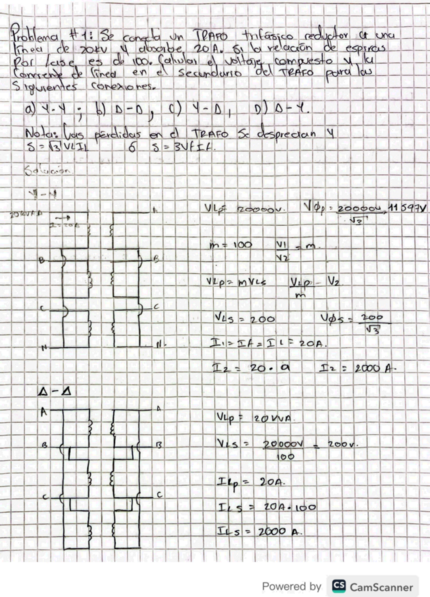 Problema #1: Se conecta un TRAFO trifásico reductor a una
línea de 20kV y absorbe 20A. Si la relación de espiras
por fase es de 100. Calular el voltaje compuesto y la
corriente de línea en el secundario del TRAFO para las
siguientes conexiones.
a) Y-Y ; b) Δ-Δ, c) Y-Δ, D) Δ-Y.
Notas: Las pérdidas en el TRAFO se desprecian y
S = √3 VLIL ó S = 3VfIf.
Solución
Y-Y
A
VL = 20000V. VΦp = 20000V 11547V
√3
m = 100 V1 = m.
V2
B B
VLp = mVLs VLp = V2
m
C C
VLS = 200 VΦs = 200
√3
N N.
I1 = If = IL = 20A.
I2 = 20 · a I2 = 2000 A.
Δ-Δ
A A
VLp = 20kVA.
B B
VLS = 20000V = 200V.
100
ILp = 20A.
C C
ILS = 20A·100
ILS = 2000 A.
Powered by CS CamScanner